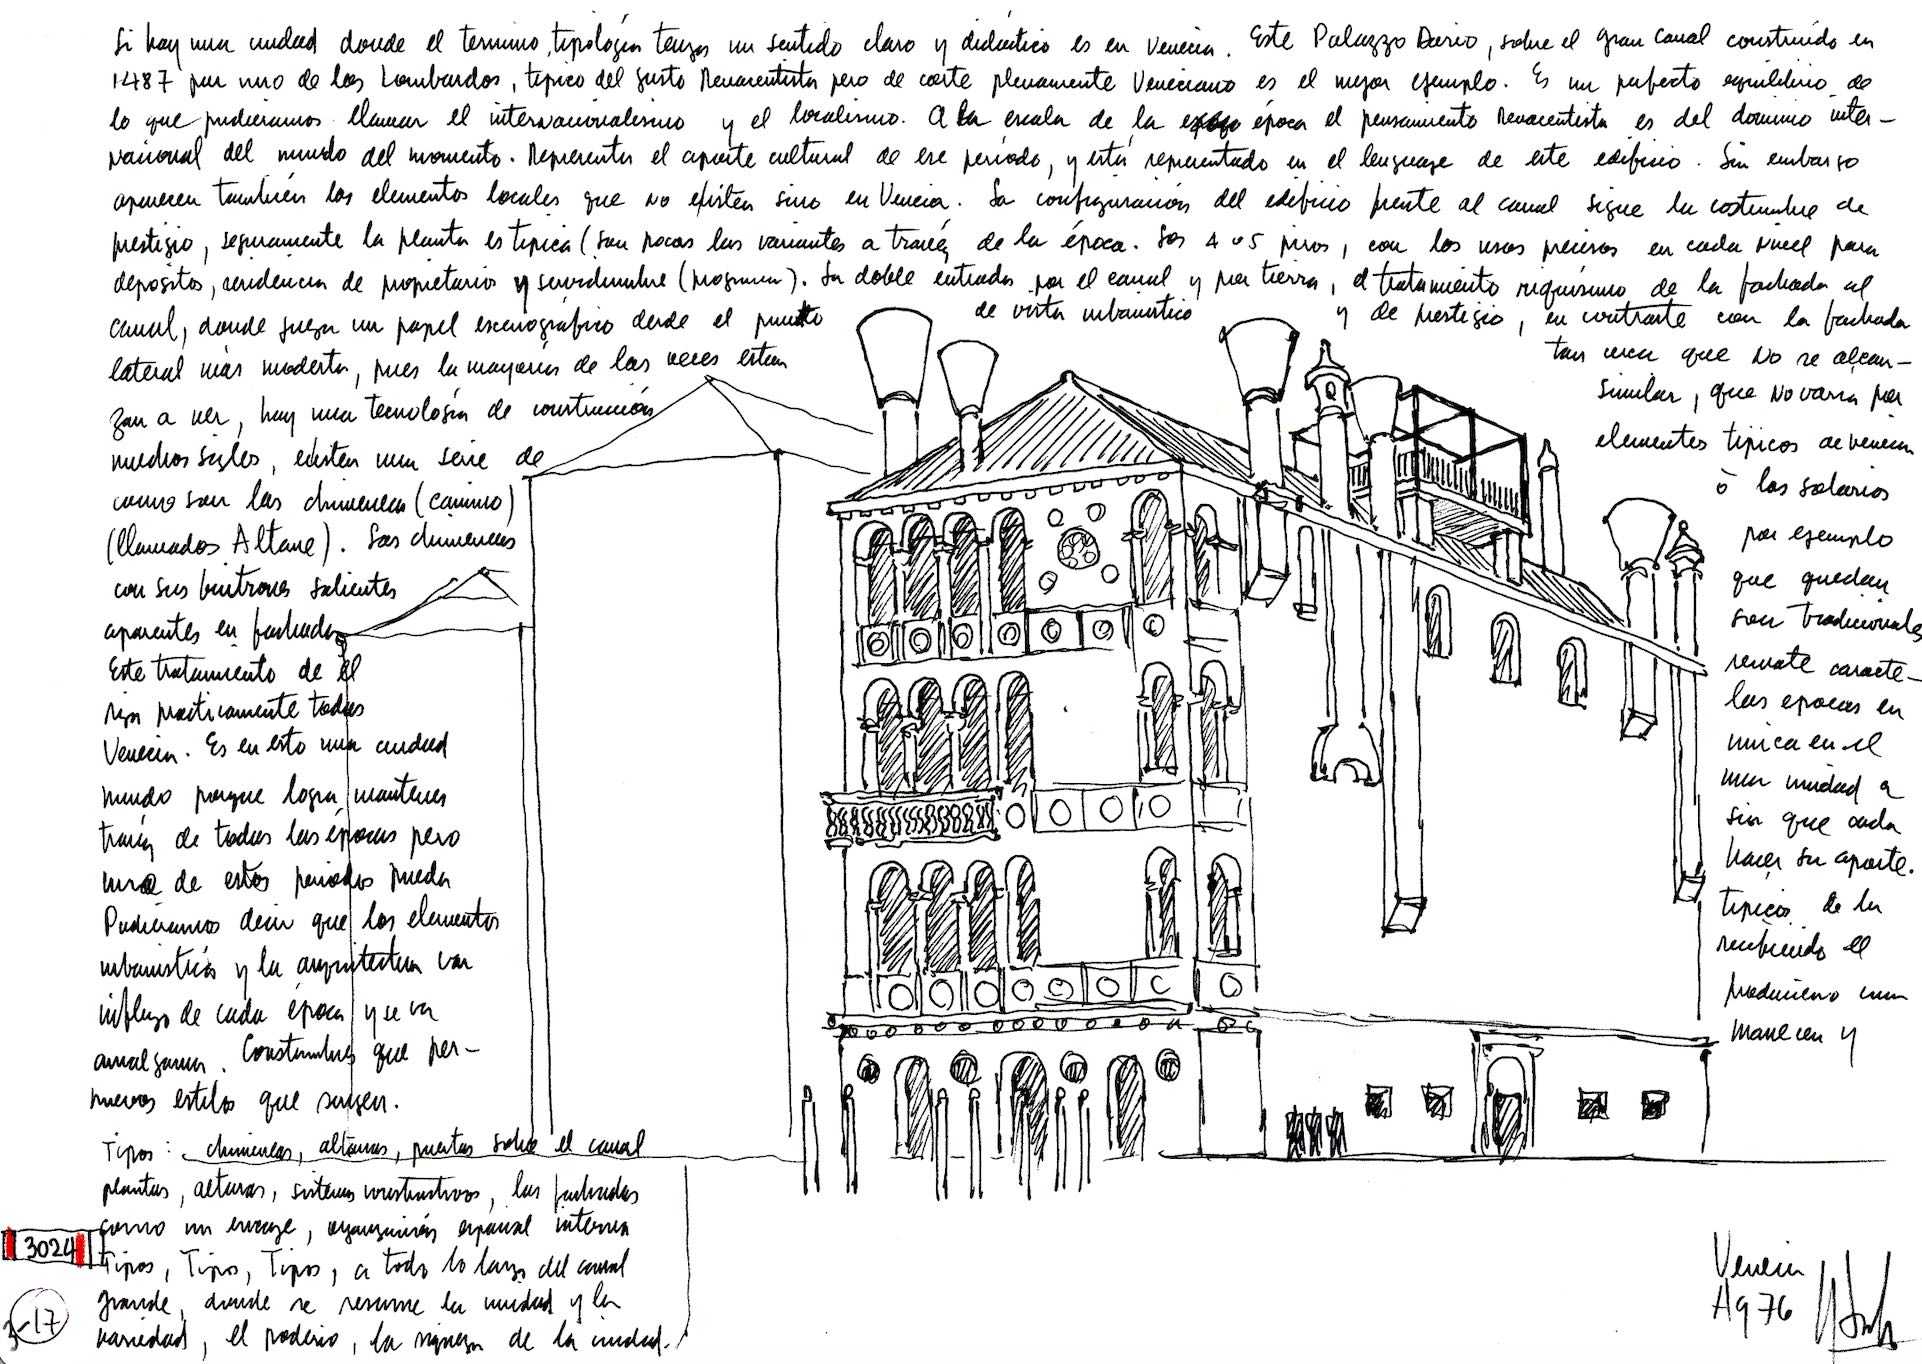 Si hay una ciudad donde el termino tipología tenga un sentido claro y didáctico es en Venecia. Este Palazzo Dario, sobre el gran canal construido en
1487 por uno de los Lombardos, tipico del gusto Renacentista pero de corte plenamente Veneciano es el mejor ejemplo. Es un perfecto equilibrio de
lo que pudieramos llamar el internacionalismo y el localismo. A la escala de la época el pensamiento Renacentista es del dominio inter-
nacional del mundo del momento. Representa el aporte cultural de ese período, y está representado en el lenguaje de este edificio. Sin embargo
aparecen también los elementos locales que no existen sino en Venecia. La configuración del edificio frente al canal sigue la costumbre de
prestigio, seguramente la planta es tipica (son pocas las variantes a través de la época. Los 4 o 5 pisos, con los usos precisos en cada nivel para
depositos, residencia de propietarios y servidumbre (programa). La doble entrada por el canal y por tierra, el tratamiento riquísimo de la fachada al
canal, donde juega un papel escenográfico desde el punto de vista urbanistico y de prestigio, en contraste con la fachada
lateral más modesta, pues la mayoría de las veces estan tan cerca que no se alcan-
zan a ver, hay una tecnología de construcción similar, que no varia por
muchos siglos, existen una serie de elementos tipicos de venecia
como son las chimeneas (camino) ò los solarios
(llamados Altane). Las chimeneas por ejemplo
con sus buitrones salientes que quedan
aparentes en fachada son tradicionales
Este tratamiento de el remate caracte-
riza practicamente todas las epocas en
Venecia. Es en esto una ciudad unica en el
mundo porque logra mantener una unidad a
través de todas las épocas pero sin que cada
uno de estos periodos pueda hacer su aporte.
Pudieramos decir que los elementos tipicos de la
urbanistica y la arquitectura van recibiendo el
influjo de cada época y se va produciendo una
amalgama. Costumbres que per- manecen y
nuevos estilos que surgen.
Tipos: chimeneas, altanas, puertas sobre el canal
plantas, alturas, sistemas constructivos, las fachadas
como un encaje, organización espacial interna
Tipos, Tipos, Tipos, a todo lo largo del canal
grande, donde se resume la unidad y la
variedad, el poderio, la riqueza de la ciudad.
3024
3-17
Venecia
Ag 76